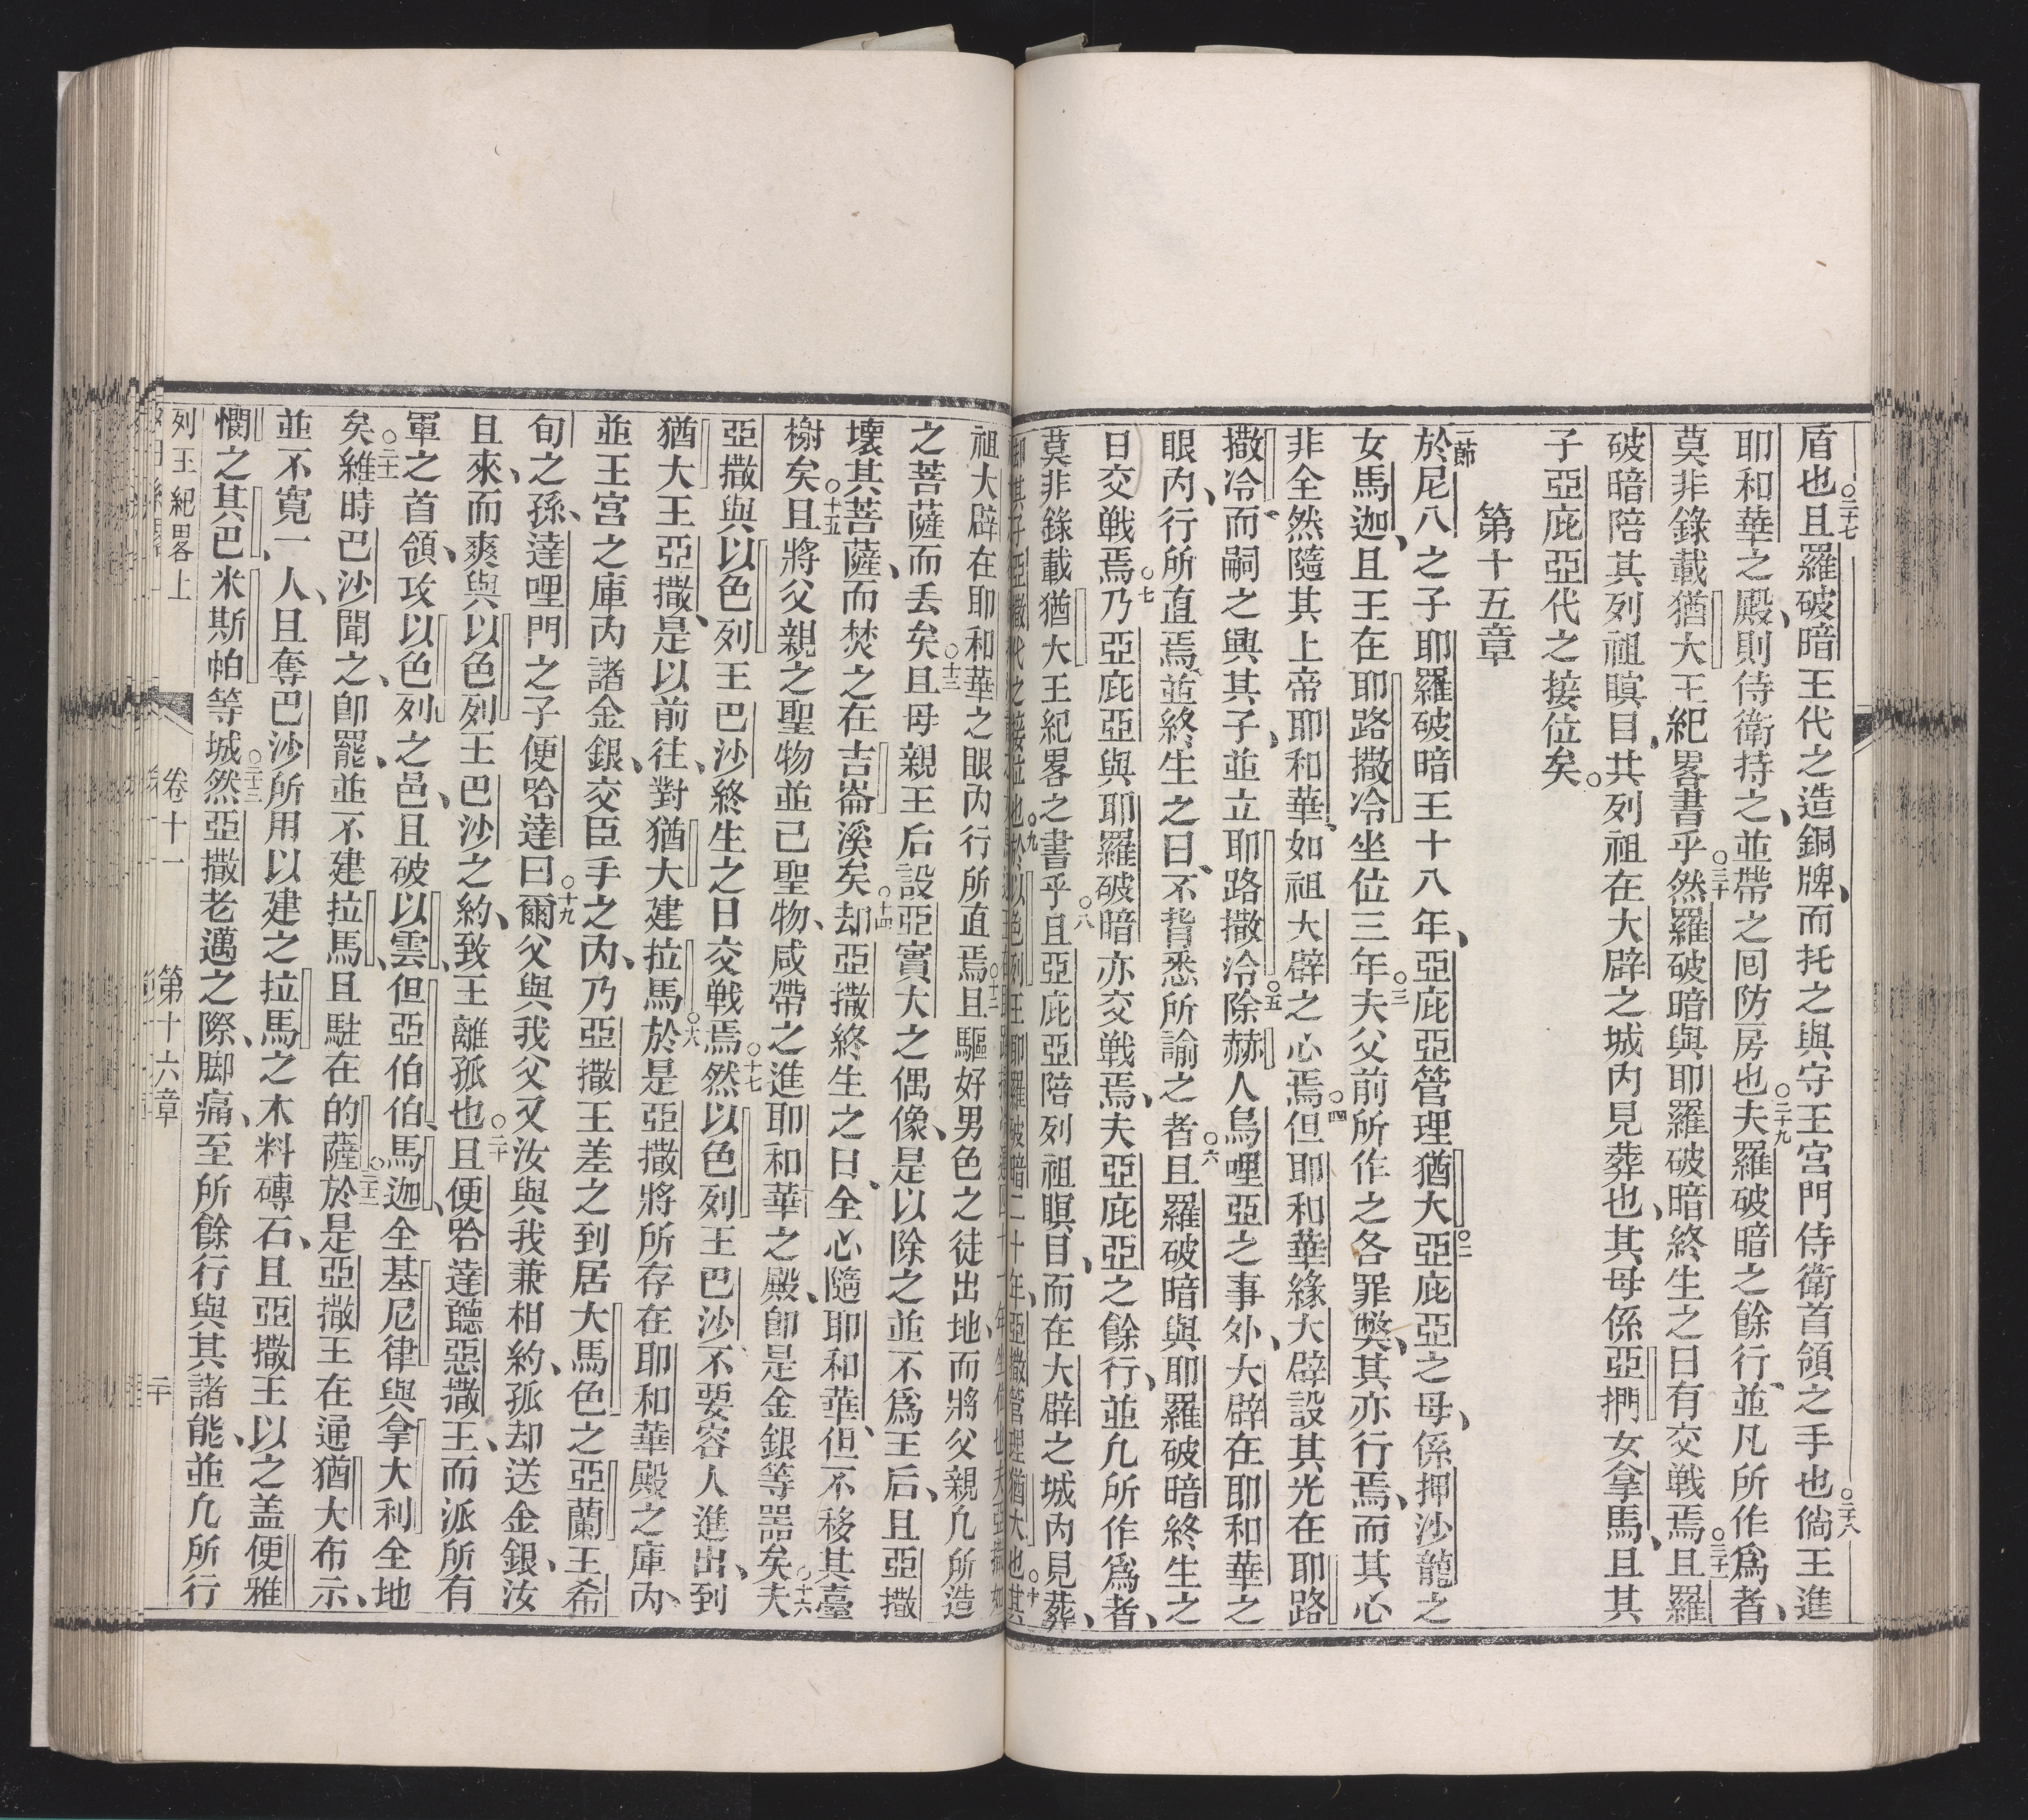 盾也○二十七且羅破暗王代之造銅牌、而托之與守王宮門侍衛首領之手也○二十八倘王進
耶和華之殿、則侍衛持之、並帶之囘防房也○二十九夫羅破暗之餘行、並凡所作爲者、
莫非錄載猶大王紀畧書乎○三十然羅破暗與耶羅破暗終生之日有交戰焉○三十一且羅
破暗陪其列祖瞑目、共列祖在大辟之城內見葬也、其母係亞捫女拿馬、且其
子亞庇亞代之接位矣。
第十五章
一節於尼八之子耶羅破暗王十八年、亞庇亞管理猶大○二亞庇亞之母、係押沙龍之
女馬迦、且王在耶路撒冷坐位三年○三夫父前所作之各罪獘、其亦行焉、而其心
非全然隨其上帝耶和華、如祖大辟之心焉○四但耶和華緣大辟設其光在耶路
撒冷而嗣之興其子、並立耶路撒冷○五除赫人烏哩亞之事外、大辟在耶和華之
眼內、行所直焉、並終生之日、不背悉所諭之者○六且羅破暗與耶羅破暗終生之
日交戰焉○七乃亞庇亞與耶羅破暗亦交戰焉、夫亞庇亞之餘行、並凡所作爲者、
莫非錄載猶大王紀畧之書乎○八且亞庇亞陪列祖瞑目、而在大辟之城內見葬、
卽其子亞撒代之接位也○九於以色列王耶羅破暗二十年、亞撒管理猶大也○十其
祖大辟在耶和華之眼內行所直焉○十二且驅好男色之徒出地、而將父親凡所造
之菩薩而丟矣○十三且母親王后設亞實大之偶像、是以除之並不爲王后、且亞撒
壞其菩薩、而焚之在吉崙溪矣○十四却亞撒終生之日、全心隨耶和華、但不移其臺
榭矣○十五且將父親之聖物並己聖物、咸帶之進耶和華之殿、卽是金銀等噐矣○十六夫
亞撒與以色列王巴沙終生之日交戰焉○十七然以色列王巴沙、不要容人進出、到
猶大王亞撒、是以前往、對猶大建拉馬○十八於是亞撒將所存在耶和華殿之庫內、
並王宮之庫內諸金銀、交臣手之內、乃亞撒王差之到居大馬色之亞蘭王希
旬之孫、達哩門之子便哈達曰○十九爾父與我父又汝與我兼相約、孤却送金銀、汝
且來、而爽與以色列王巴沙之約、致王離孤也○二十且便哈達聽惡撒王、而派所有
軍之首領、攻以色列之邑、且破以雲、但亞伯伯馬迦、全基尼律與拿大利全地
矣○二十一維時巴沙聞之、卽罷、並不建拉馬、且駐在的薩○二十二於是亞撒王在通猶大布示、
並不寬一人、且奪巴沙所用以建之拉馬之木料磚石、且亞撒王以之盖便雅
憫之其巴、米斯帕等城○二十三然亞撒老邁之際、脚痛、至所餘行與其諸能、並凡所行
列王紀畧上　卷十一　第十六章　二十